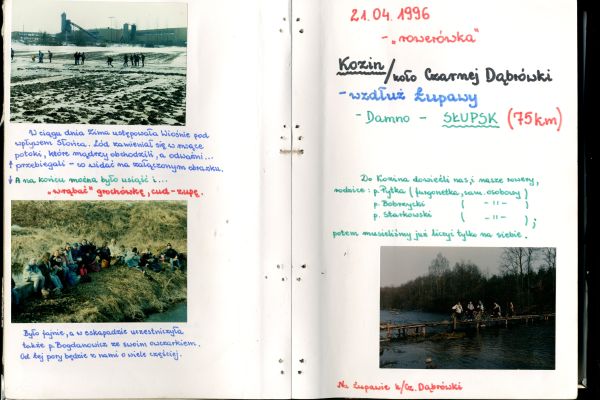 W ciągu dnia Zima ustępowała Wiośnie pod
wpływem Słońca. Lód zamieniał się w rwące
potoki, które mądrzy obchodzili, a odważni...
↑ przebiegali - co widać na załączonym obrazku.
↓ A na końcu można było usiąść i...
"wrąbać" grochówkę, cud-zupę.
Było fajnie, a w eskapadzie uczestniczyła
także p. Bogdanowicz ze swoim owczarkiem.
Od tej pory będzie z nami o wiele częściej.
21.04.1996
- "rowerówka"
Kozin / koło Czarnej Dąbrówki
- wzdłuż Łupawy
- Damno - SŁUPSK (75km)
Do Kozina dowieźli nas, i nasze rowery,
rodzice: p. Pytka (furgonetka, sam. osobowy)
p. Bobrzycki ( -"- )
p. Starkowski ( -"- );
potem musieliśmy już liczyć tylko na siebie.
Na Łupawie k/Cz. Dąbrówki